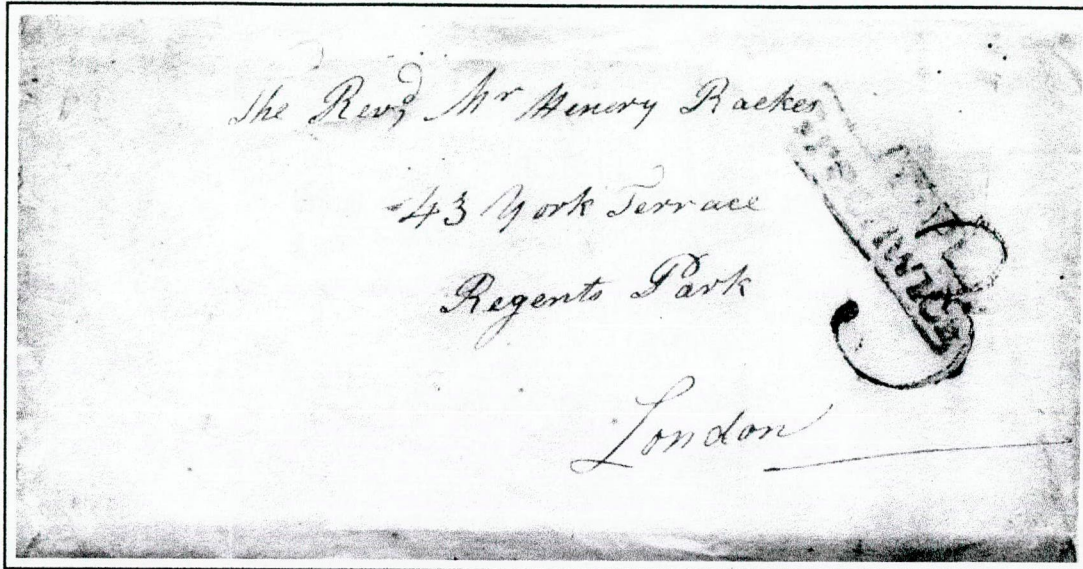 The Revd, Mr Henery Raekes
43 York Terrace
Regents Park
London